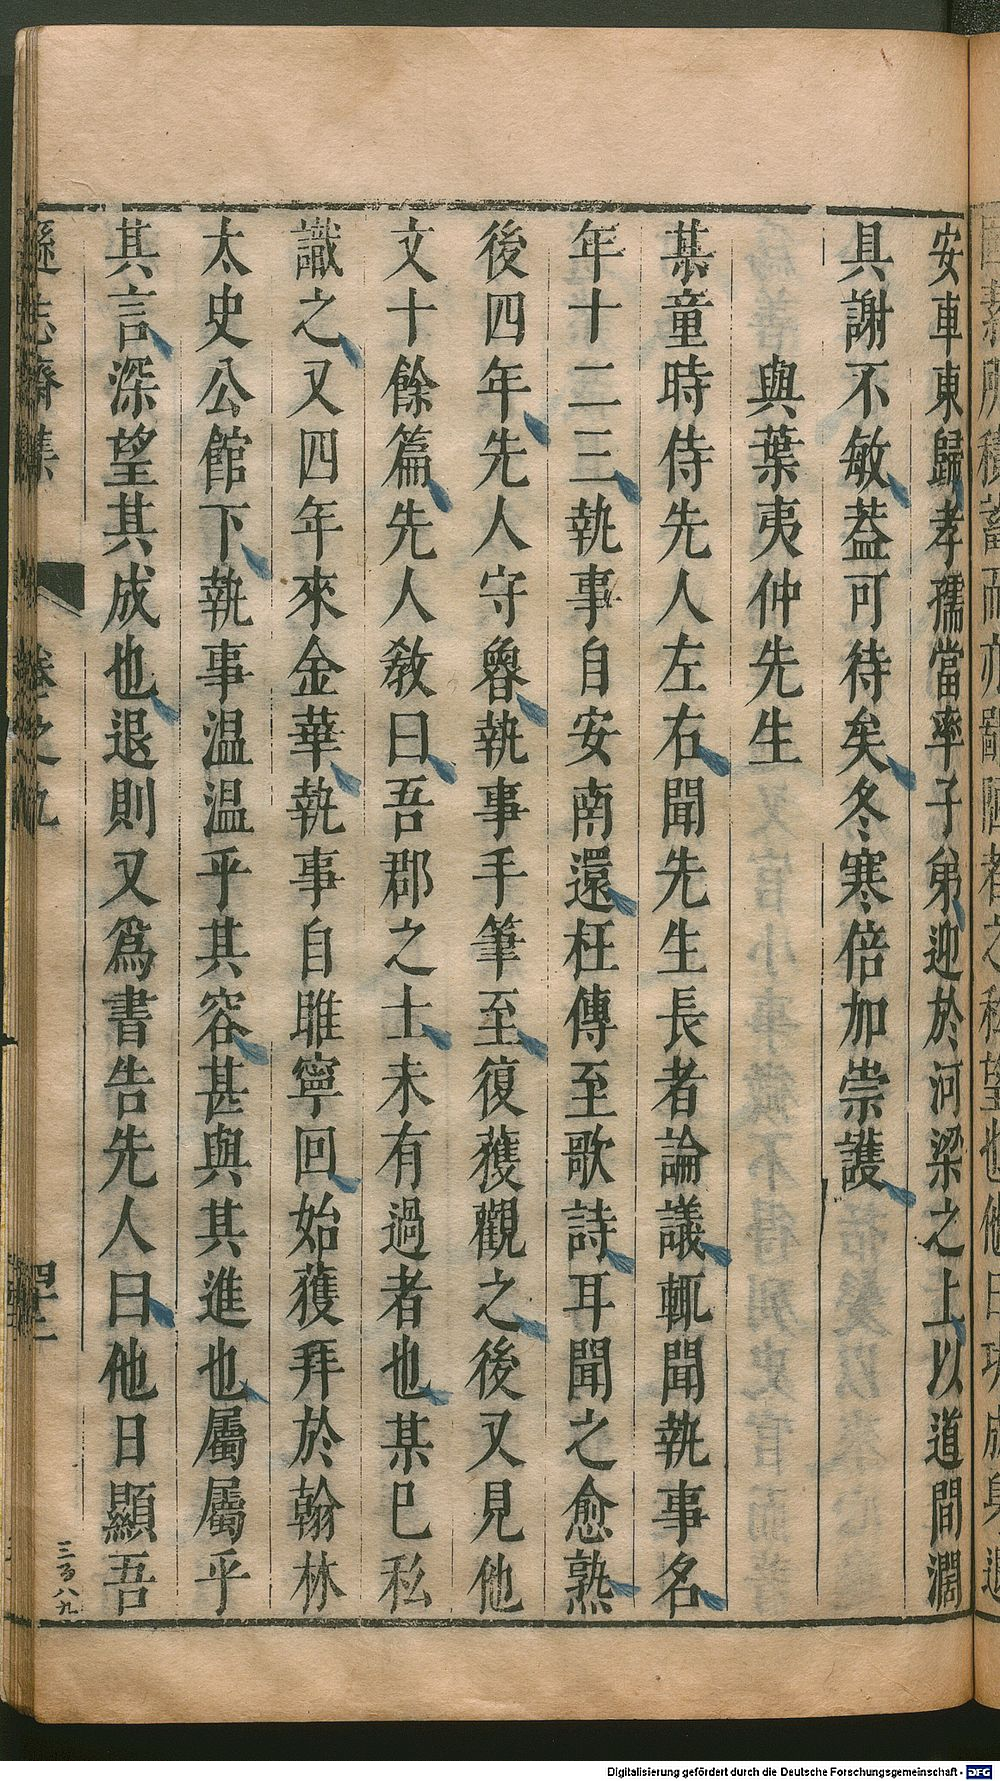 安車東歸孝孺當率子弟迎於河梁之上以道間濶
具謝不敏葢可待矣冬寒倍加崇護
與葉夷仲先生
某童時侍先人左右聞先生長者論議輒聞執事名
年十二三執事自安南還枉傳至歌詩耳聞之愈熟
後四年先人守魯執事手筆至復獲觀之後又見他
文十餘篇先人敎曰吾郡之士未有過者也某已私
識之又四年來金華執事自雎寧回始獲拜於翰林
太史公館下執事温温乎其容甚與其進也屬屬乎
其言深望其成也退則又爲書告先人曰他日顯吾
遜志齋集 卷之九 四十二
三百八九
Digitalisierung gefördert durch die Deutsche Forschungsgemeinschaft - DFG